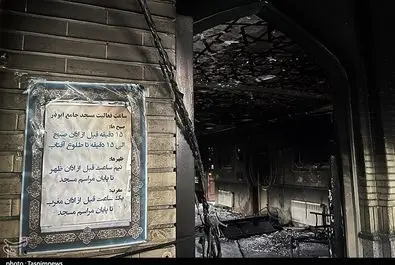 ساعت فعالیت مسجد جامع ابوذر
صبح ها:
۱۵ دقیقه قبل از اذان صبح
الی ۱۵ دقیقه تا طلوع آفتاب
ظهرها:
نیم ساعت قبل از اذان ظهر
تا پایان مراسم مسجد
مغرب:
یک ساعت قبل از اذان مغرب
تا پایان مراسم مسجد
photo : Tasnimnews